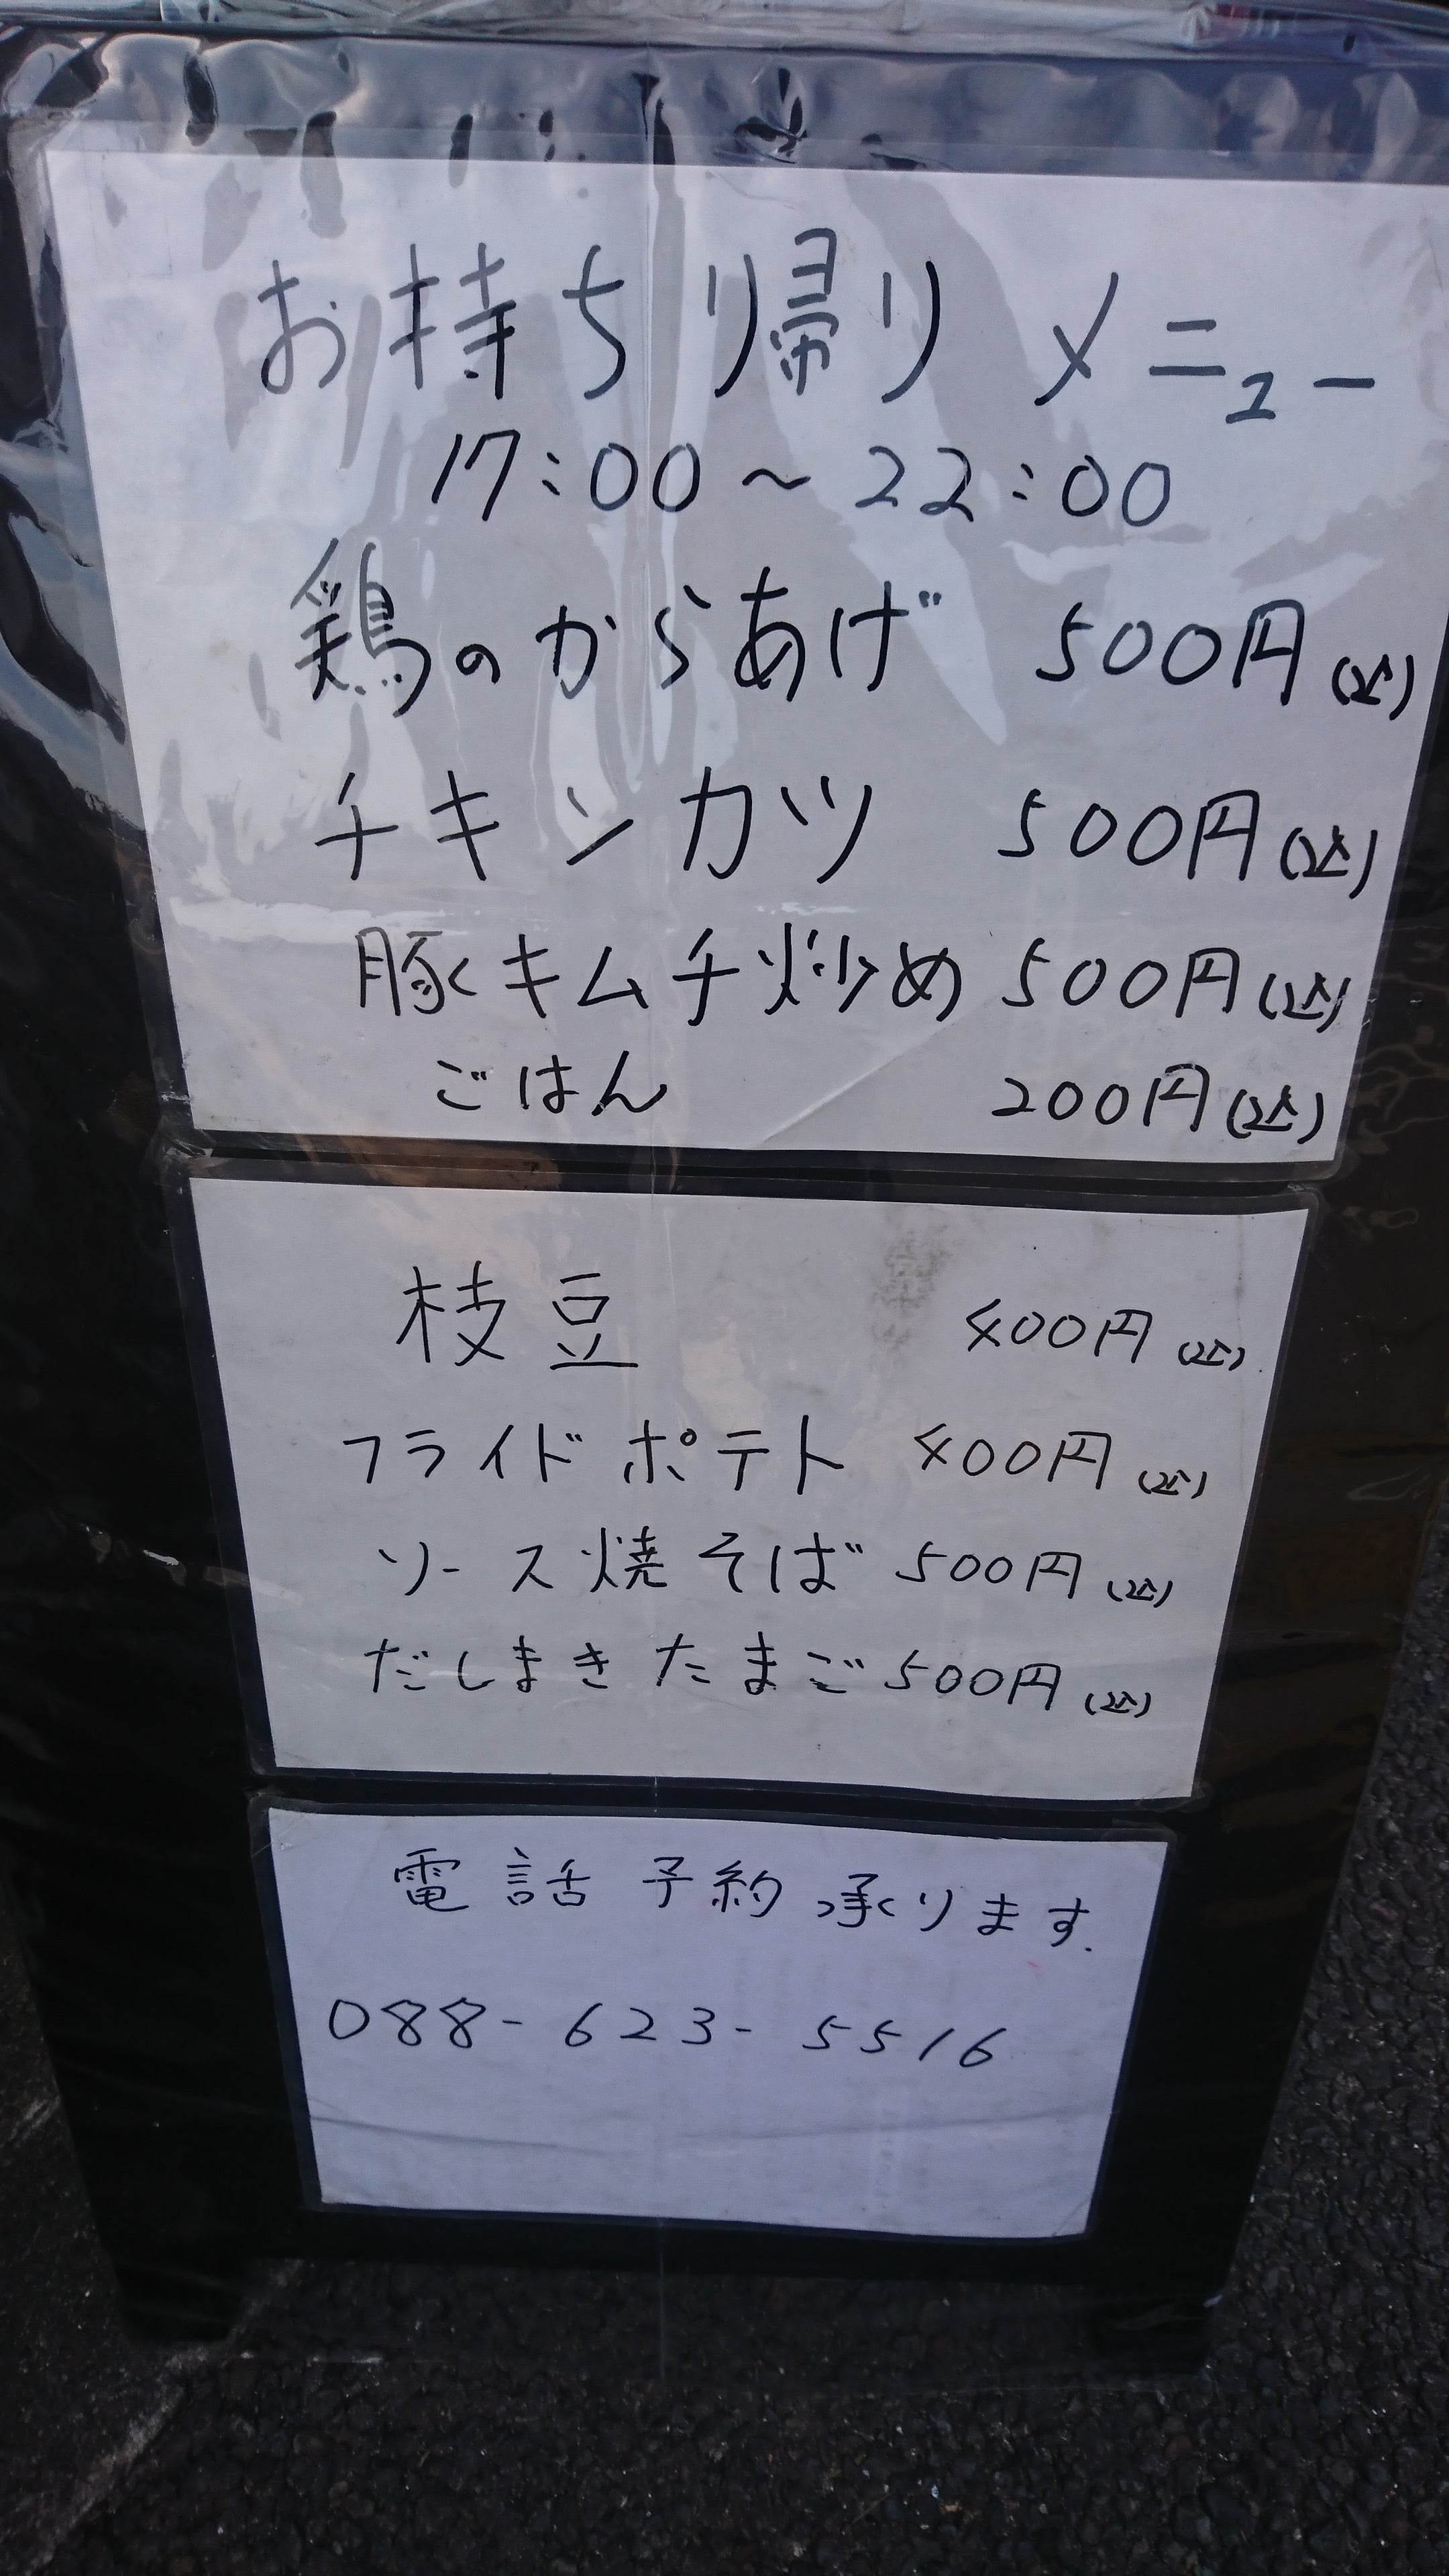 お持ち帰りメニュー
17:00～22:00
鶏のからあげ 500円(込)
チキンカツ 500円(込)
豚キムチ炒め 500円(込)
ごはん 200円(込)
枝豆 400円(込)
フライドポテト 400円(込)
ソース焼そば 500円(込)
だしまきたまご 500円(込)
電話予約承ります.
088-623-5516